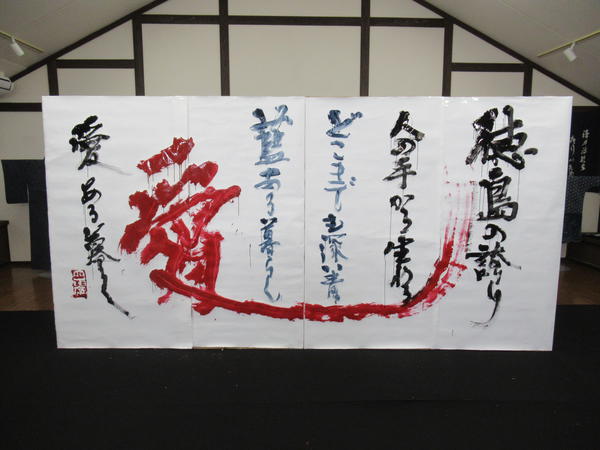 徳島の誇り
人の手から生れる
どこまでも深い青
藍ある暮らし
愛
愛ある暮らし